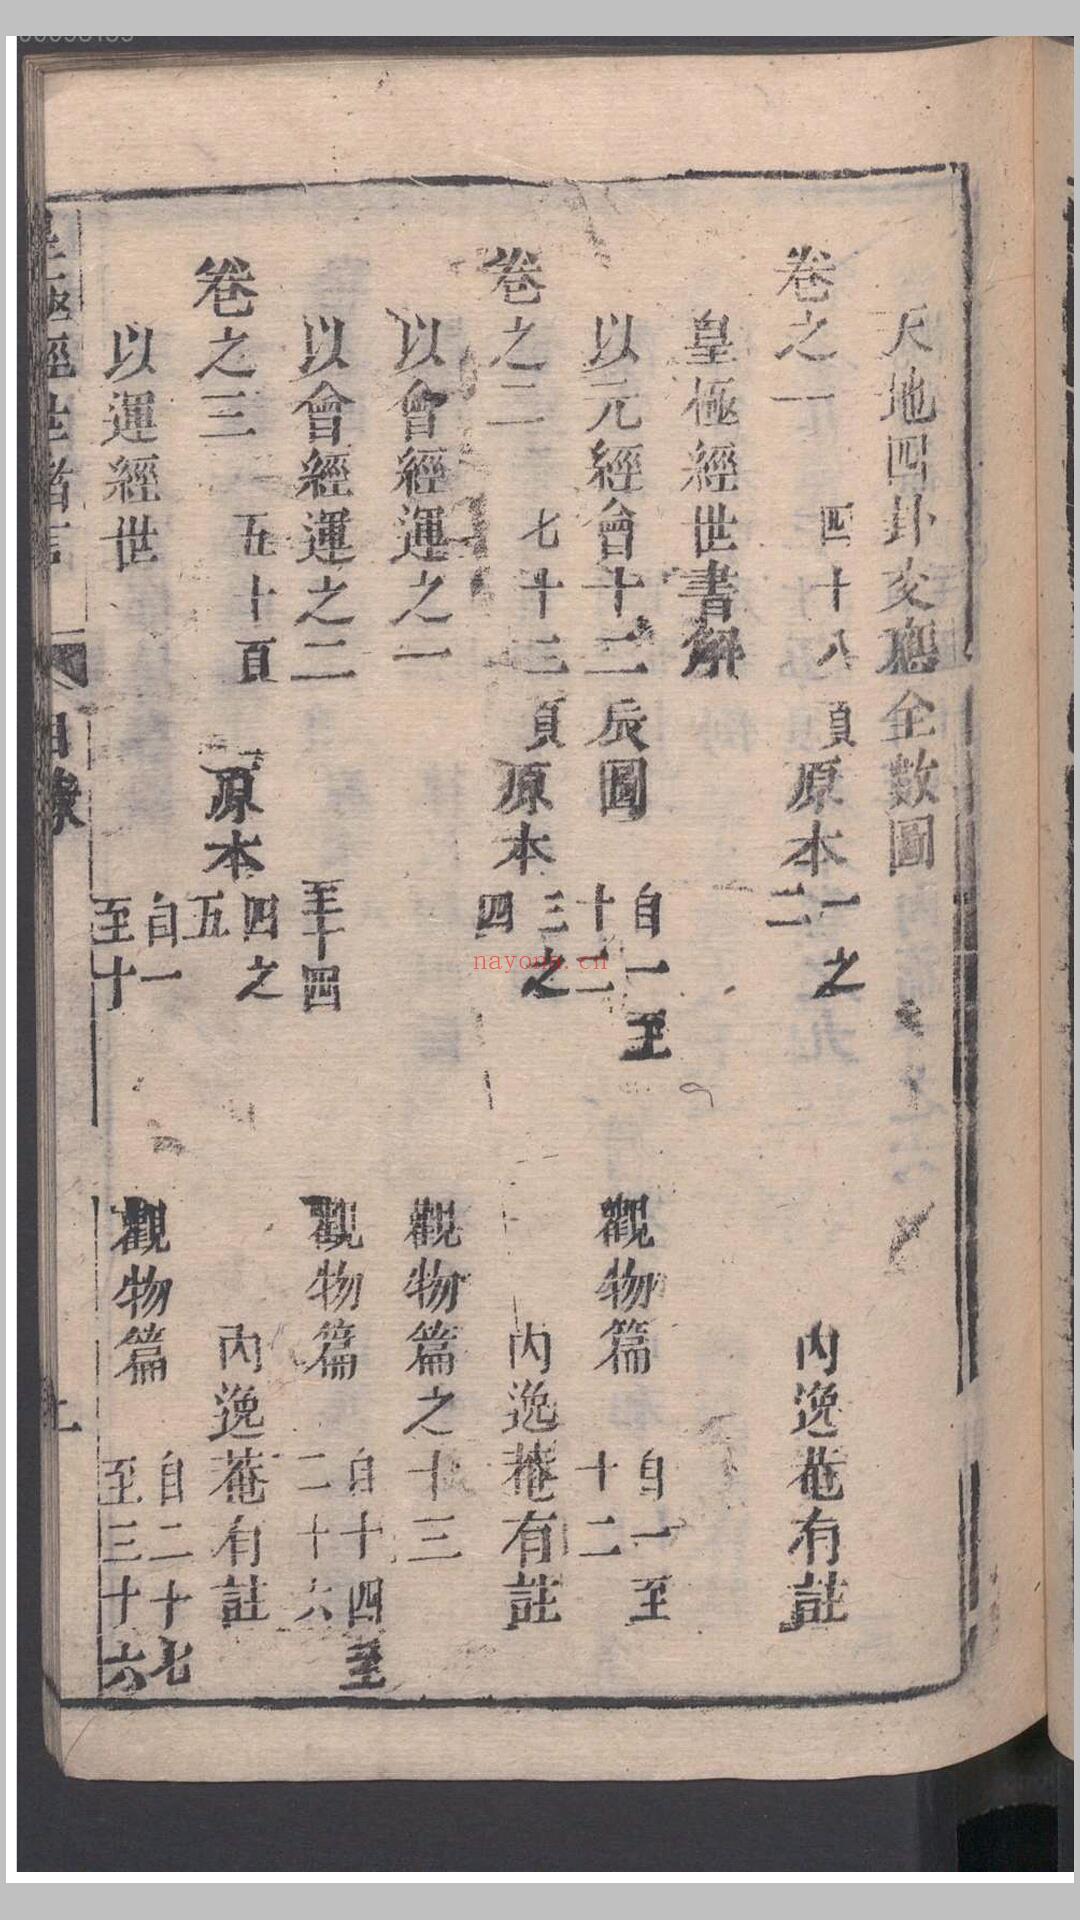 天地四卦交應全數圖
卷之一 四十八頁原本一之二 内逸菴有註
皇極經世書解
以元經會十二辰圖 自一至十二 觀物篇 自一至十二
卷之二 七十三頁原本三之四 内逸菴有註
以會經運之一 觀物篇之十三
以會經運之二 至十四 觀物篇 自十四至二十六
卷之三 五十頁 原本四之五 内逸菴有註
以運經世 自一至十 觀物篇 自二十七至三十六
皇極經世緒言 目錄
nayona.cn